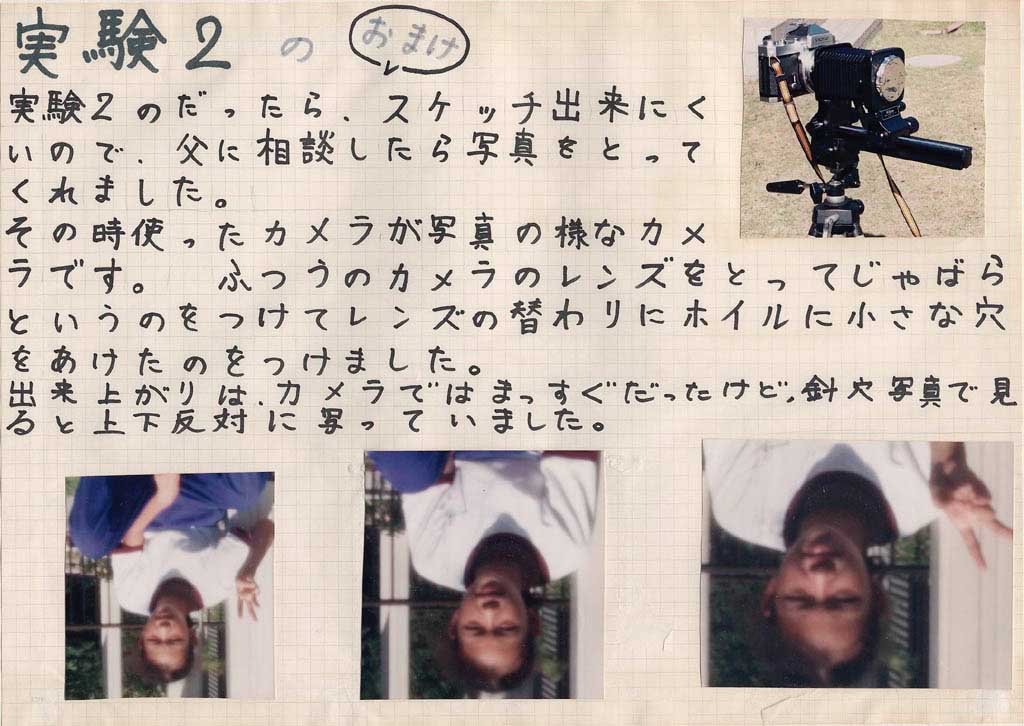 実験2 の おまけ
実験2のだったら、スケッチ出来にく
いので、父に相談したら写真をとって
くれました。
その時使ったカメラが写真の様なカメ
ラです。 ふつうのカメラのレンズをとってじゃばら
というのをつけてレンズの替わりにホイルに小さな穴
をあけたのをつけました。
出来上がりは、カメラではまっすぐだったけど、針穴写真で見
ると上下反対に写っていました。